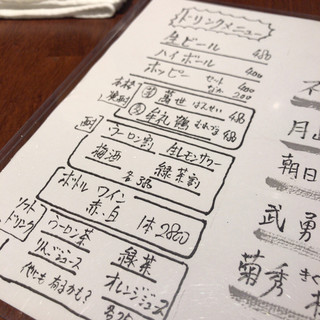 ドリンクメニュー
生ビール 480
ハイボール 400
ホッピー セット 400
なか 200
本格焼酎
萬世 ばんせい 480
牟礼鶴 むれづる 480
酎
ウーロン割 生レモンサワー
梅酒 緑茶割
各380
ボトルワイン
赤.白 1本2800
ソフトドリンク
ウーロン茶 緑茶
りんごジュース オレンジジュース
他にも有るかも?
月山
朝日
武勇
菊秀 きく